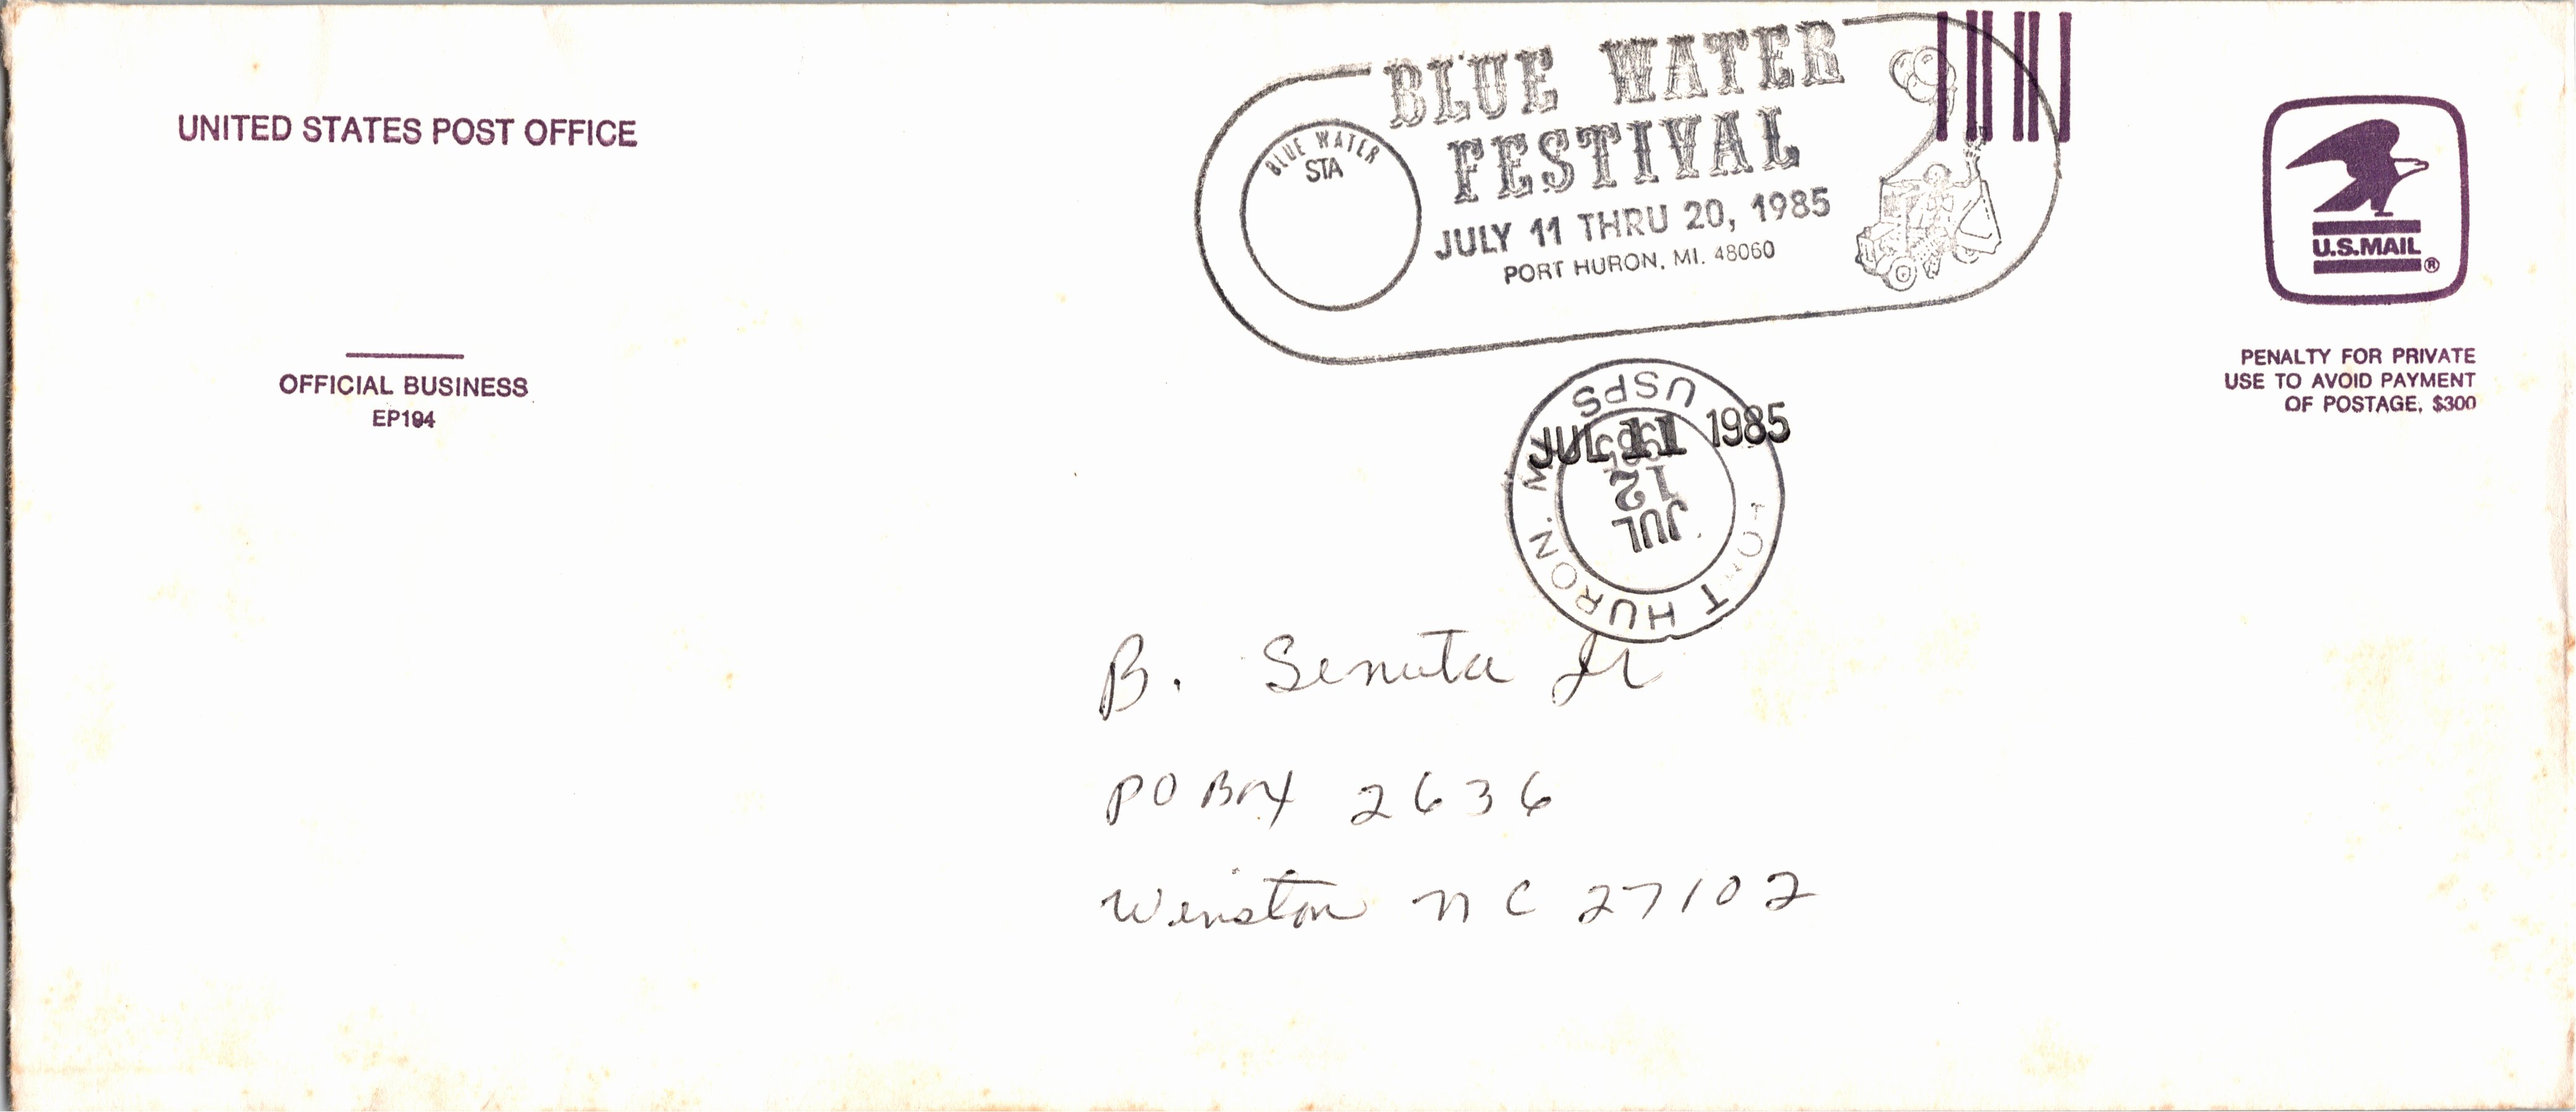 UNITED STATES POST OFFICE
OFFICIAL BUSINESS
EP194
BLUE WATER
FESTIVAL
JULY 11 THRU 20, 1985
PORT HURON, MI. 48060
BLUE WATER
STA
U.S.MAIL ®
PENALTY FOR PRIVATE
USE TO AVOID PAYMENT
OF POSTAGE, $300
JUL 11 1985
PORT HURON, MI
USPS
JUL
12
1985
B. Senuta Jr
PO Box 2636
Winston NC 27102